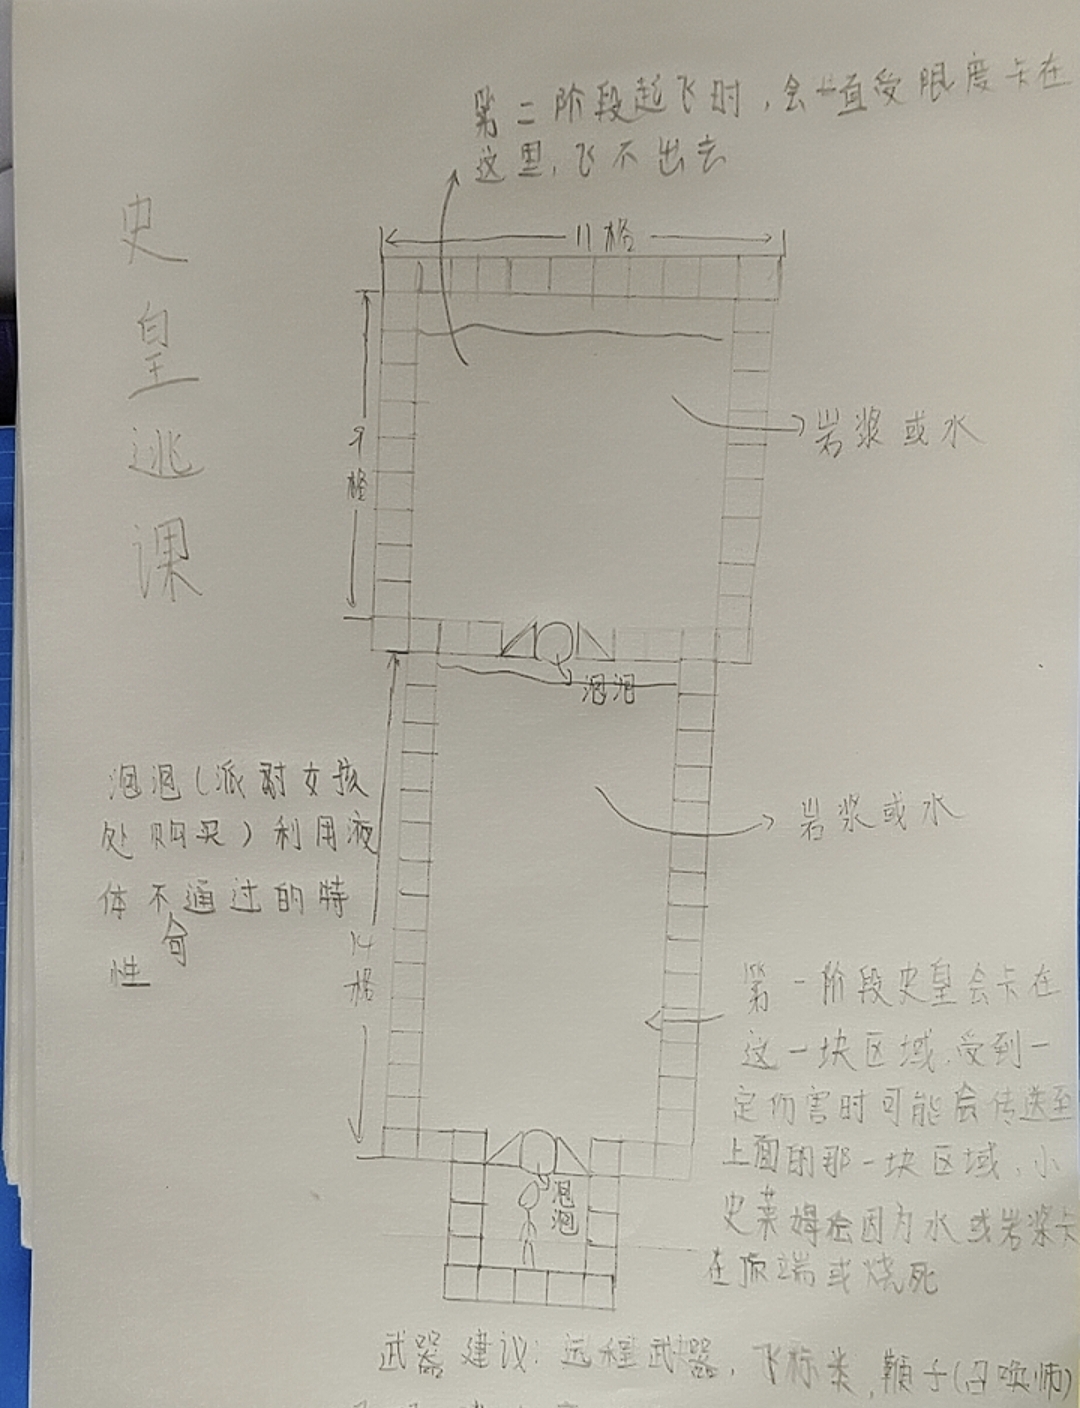 第二阶段起飞时，会一直受限度卡在
这里，飞不出去
史皇逃课
11格
9格
岩浆或水
泡泡
泡泡（派对女孩
处购买）利用液
体不通过的特
性
岩浆或水
14格
第一阶段史皇会卡在
这一块区域，受到一
定伤害时可能会传送至
上面的那一块区域，小
史莱姆会因为水或岩浆卡
在顶端或烧死
泡泡
武器建议：远程武器，飞标类，鞭子（召唤师）